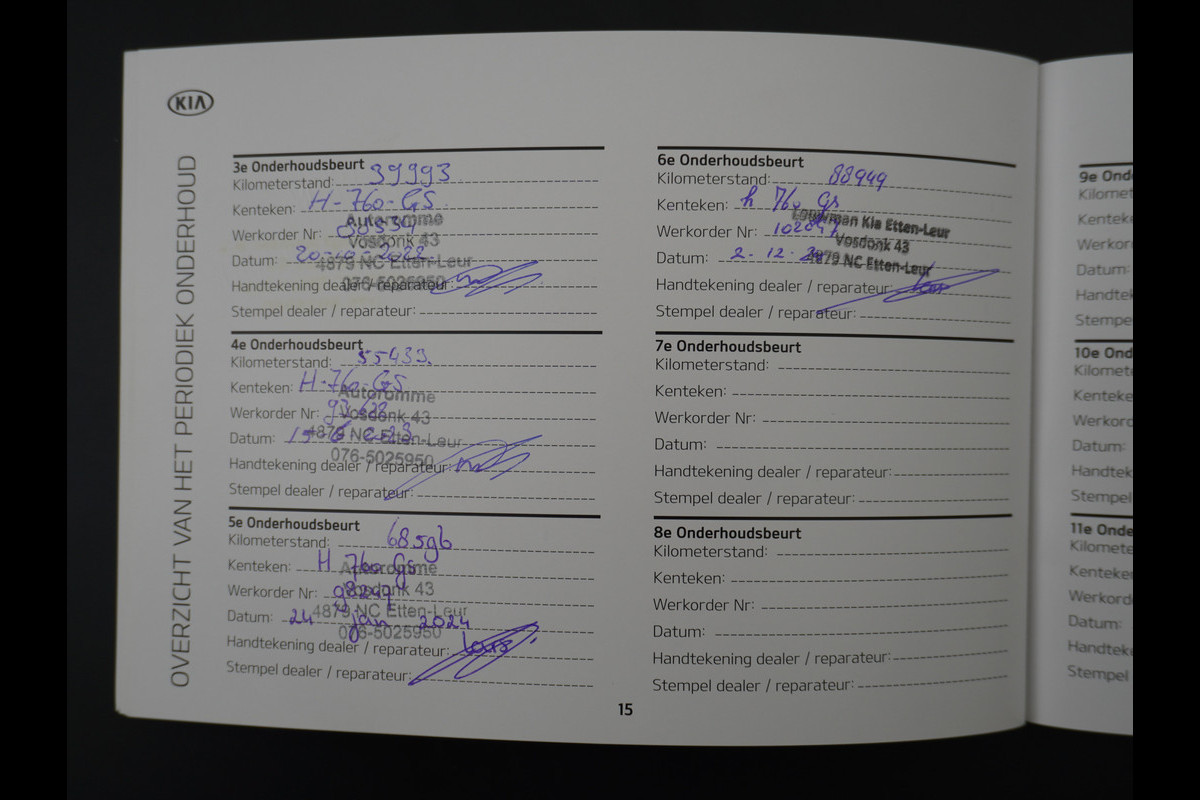 KIA
OVERZICHT VAN HET PERIODIEK ONDERHOUD
3e Onderhoudsbeurt
Kilometerstand: 39993
Kenteken: H-760-GS
Autoromme
Werkorder Nr:
Vosdonk 43
Datum: 20-10-2022
4879 NC Etten-Leur
Handtekening dealer / reparateur:
076-5025950
Stempel dealer / reparateur:
4e Onderhoudsbeurt
Kilometerstand: 55433
Kenteken: H-760-GS
Autoromme
Werkorder Nr:
Vosdonk 43
Datum:
4879 NC Etten-Leur
076-5025950
Handtekening dealer / reparateur:
Stempel dealer / reparateur:
5e Onderhoudsbeurt
Kilometerstand: 68596
Kenteken: H 760 GS
Autoromme
Werkorder Nr: 98297
Vosdonk 43
Datum: 24 jan 2024
4879 NC Etten-Leur
076-5025950
Handtekening dealer / reparateur:
Stempel dealer / reparateur:
6e Onderhoudsbeurt
Kilometerstand: 88949
Kenteken: h 760 GS
Louwman Kia Etten-Leur
Werkorder Nr:
Vosdonk 43
Datum: 2-12-
4879 NC Etten-Leur
Handtekening dealer / reparateur:
Stempel dealer / reparateur:
7e Onderhoudsbeurt
Kilometerstand:
Kenteken:
Werkorder Nr:
Datum:
Handtekening dealer / reparateur:
Stempel dealer / reparateur:
8e Onderhoudsbeurt
Kilometerstand:
Kenteken:
Werkorder Nr:
Datum:
Handtekening dealer / reparateur:
Stempel dealer / reparateur:
15
9e Ond
Kilomet
Kenteke
Werkor
Datum:
Handtek
Stempe
10e Ond
Kilomet
Kenteke
Werkord
Datum:
Handtek
Stempel
11e Onde
Kilomete
Kenteker
Werkord
Datum:
Handtek
Stempel